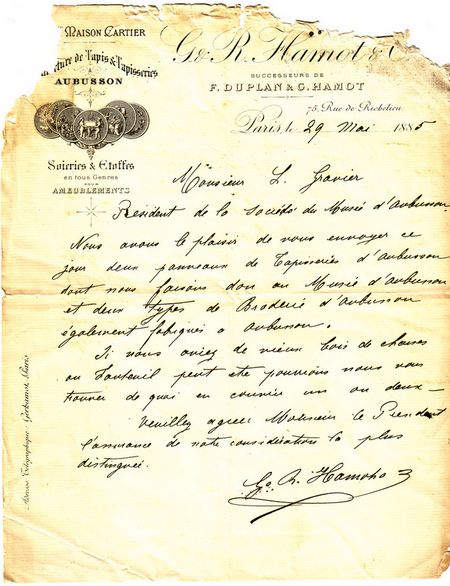 Maison Cartier
G. & R. Hamot &
de Tapis & Tapisseries
AUBUSSON
SUCCESSEURS DE
F. DUPLAN & G. HAMOT
75, Rue de Richelieu
Paris, le 29 Mai 1885
Soieries & Etoffes
en tous Genres
POUR
AMEUBLEMENTS
Monsieur L. Gravier
President de la Société du Musée d'Aubusson
Nous avons le plaisir de vous envoyer ce
jour deux panneaux de Tapisseries d'Aubusson
dont nous faisons don au Musée d'Aubusson
et deux types de Broderie d'Aubusson
également fabriqués a Aubusson.
Si vous aviez de vieux bois de chaises
ou fauteuil peut ete pourrions nous vous
trouver de quoi en couvrir un ou deux -
Veuillez agreer Monsieur le President
l'assurance de notre consideration la plus
distinguée.
G. R. Hamot
Adresse Télégraphique: Gerhamot Paris